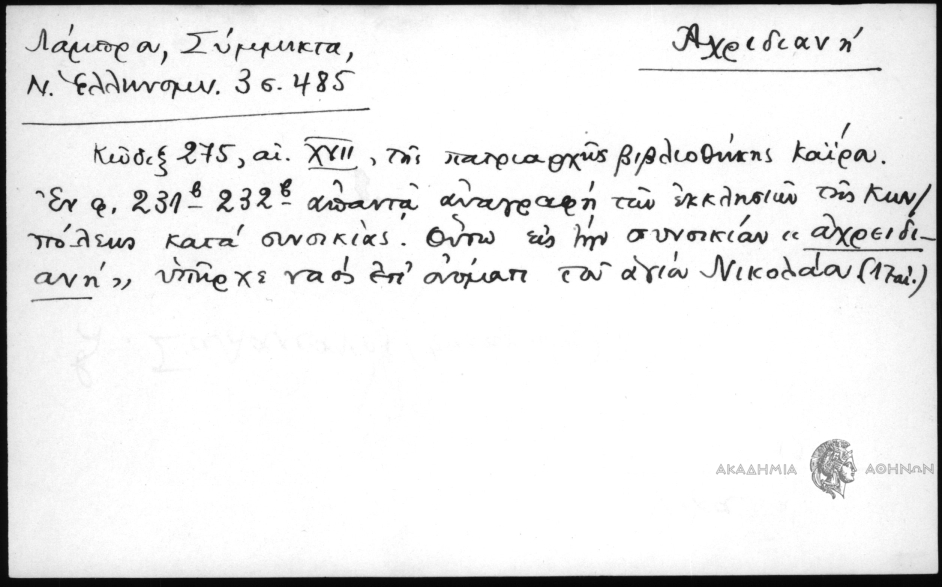 Λάμπρου, Σύμμικτα,
Ν. Ἑλληνομν. 3 σ. 485
Ἀχριδιανή
Κῶδιξ 275, αἰ. XVII, τῆς πατριαρχικῆς βιβλιοθήκης Καΐρου.
Ἐν φ. 231β- 232β ἀπαντᾷ ἀναγραφή τῶν ἐκκλησιῶν τῆς Κων/
πόλεως κατά συνοικίας. Οὕτω εἰς τήν συνοικίαν « ἀχρειδι-
ανή», ὑπῆρχε ναός ἐπ' ὀνόματι τοῦ ἁγίου Νικολάου (17 αἰ.)
ΑΚΑΔΗΜΙΑ ΑΘΗΝΩΝ